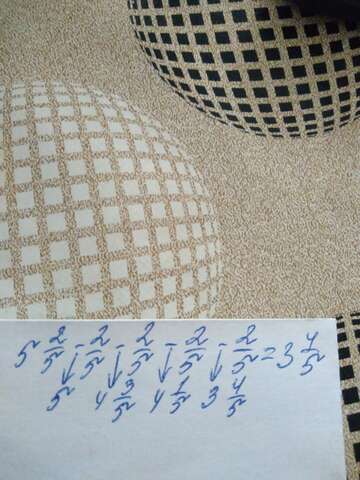 5 2/5 - 2/5 - 2/5 - 2/5 - 2/5 = 3 4/5
5 4 3/5 4 1/5 3 4/5